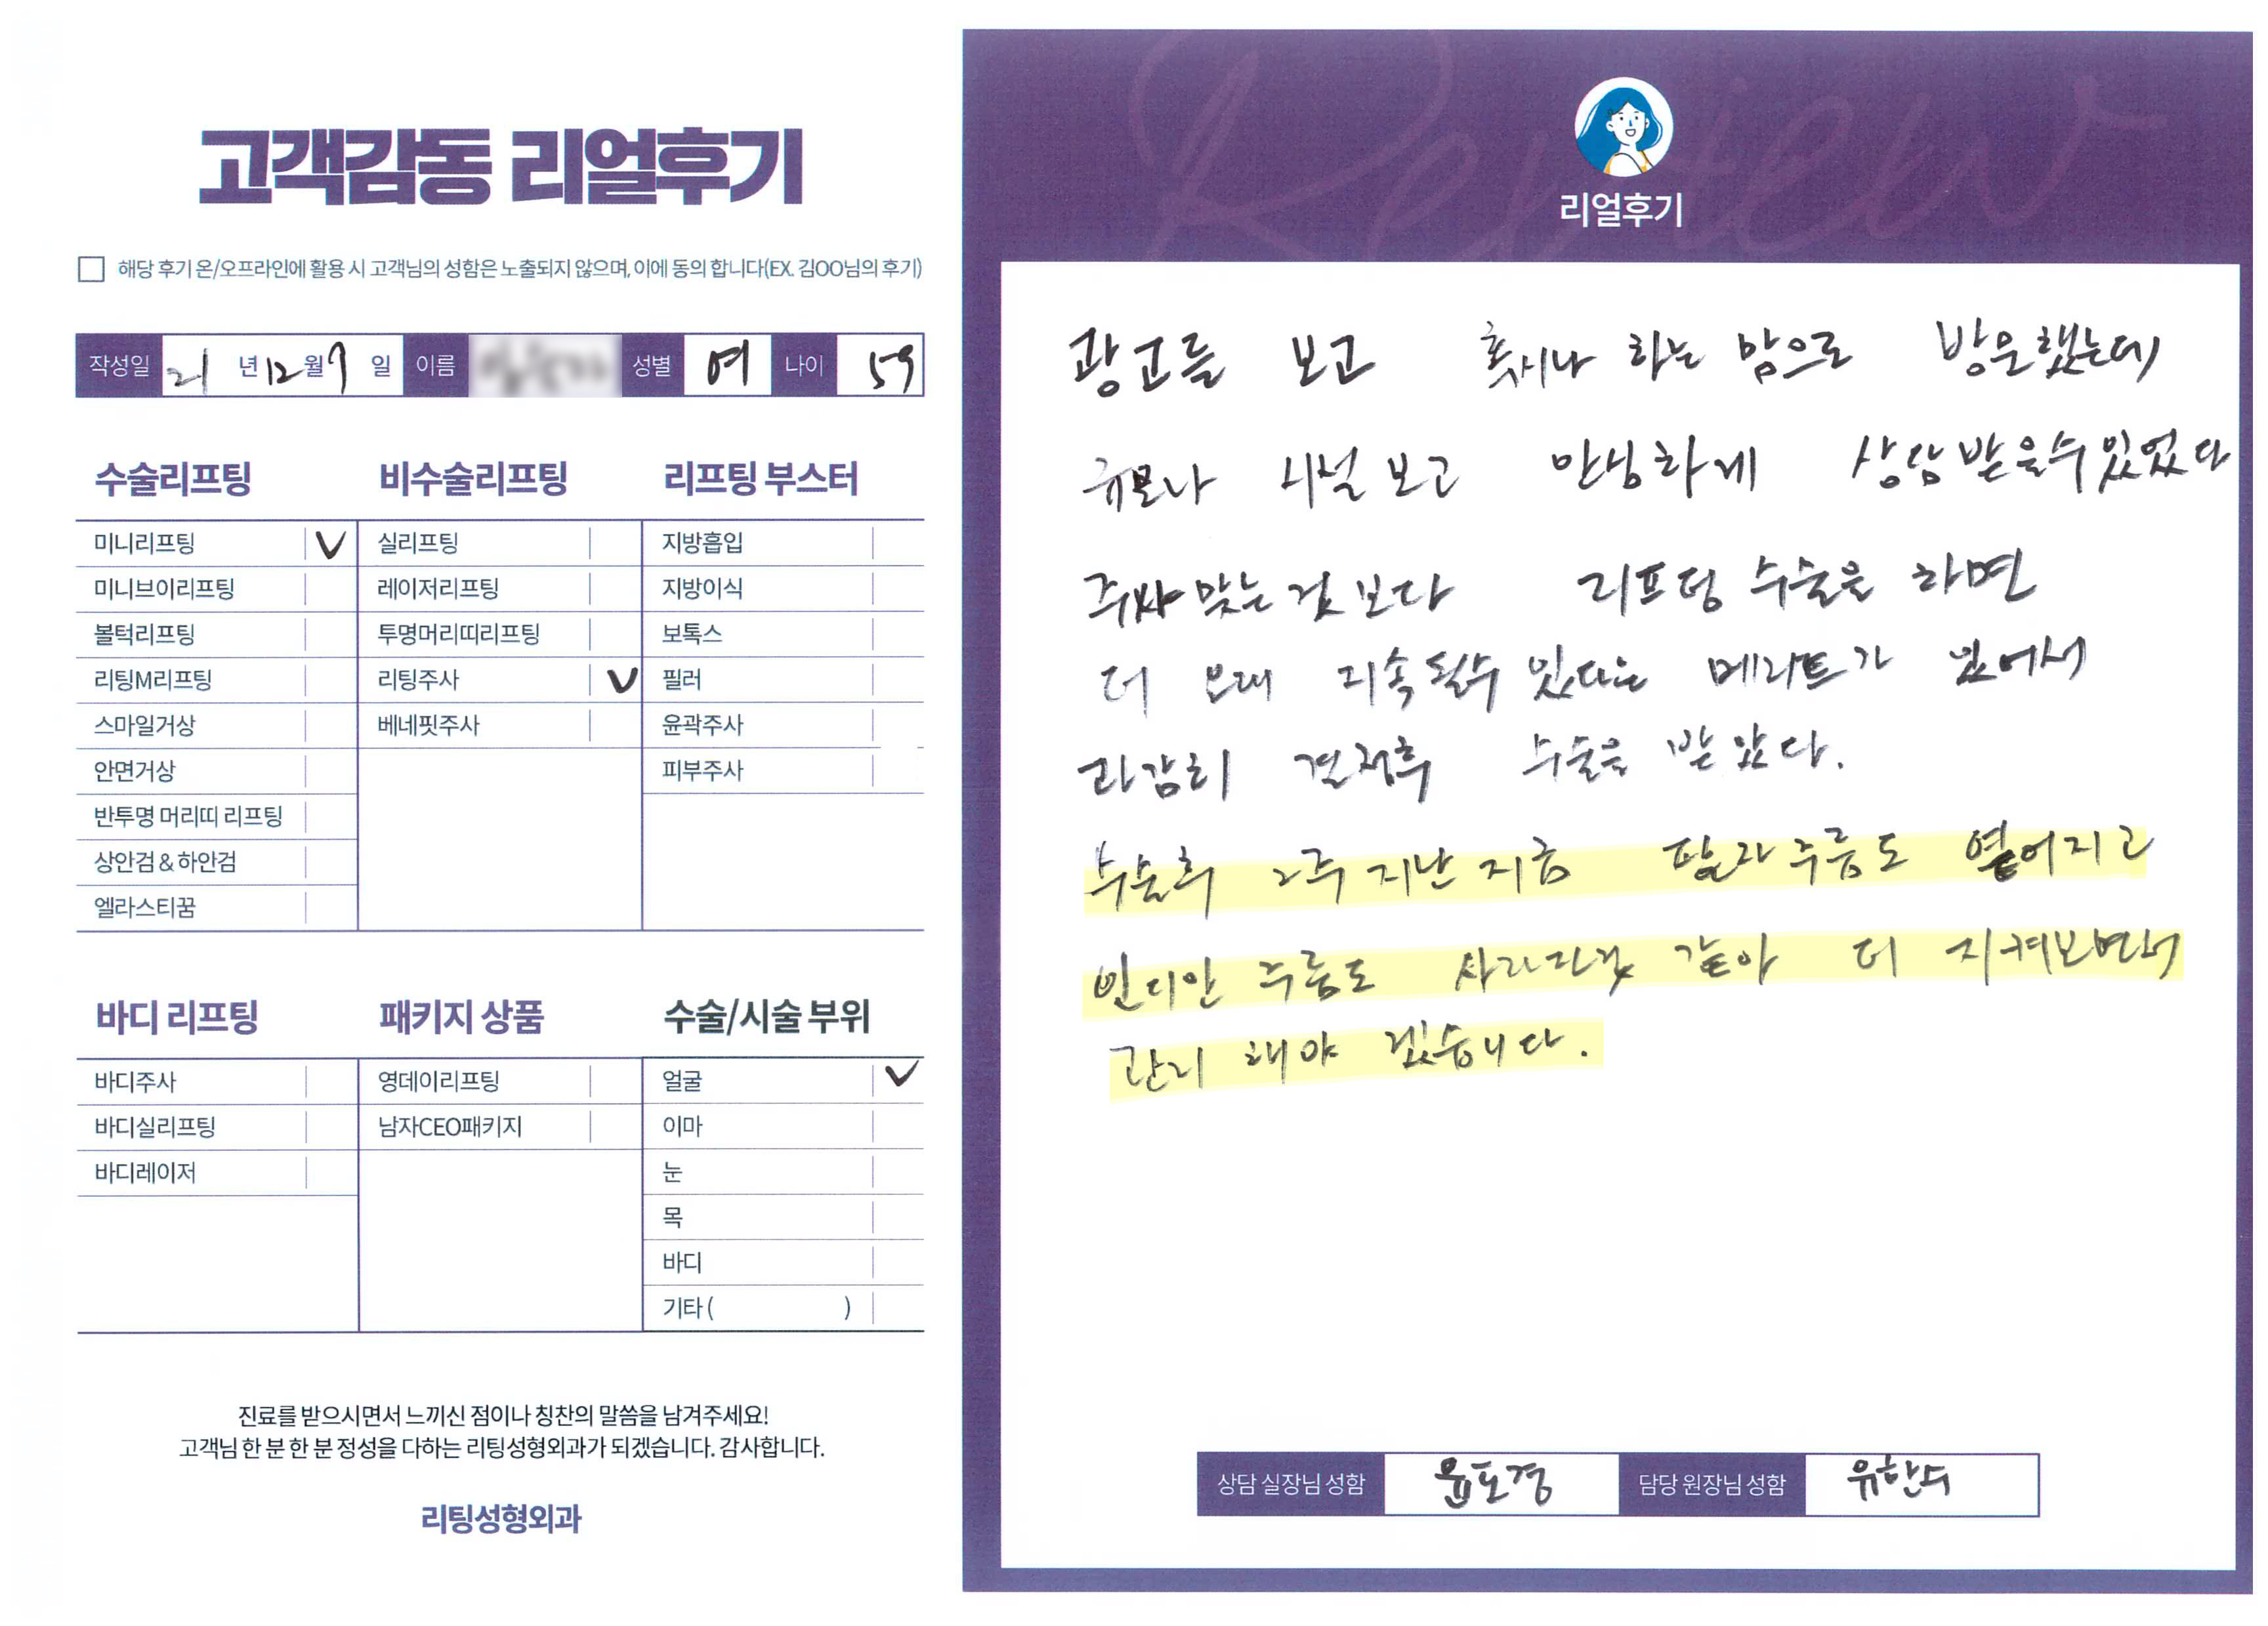 고객감동 리얼후기
해당 후기 온/오프라인에 활용 시 고객님의 성함은 노출되지 않으며, 이에 동의 합니다(EX. 김OO님의 후기)
작성일 21 년 12 월 9 일 이름 성별 여 나이 59
수술리프팅 비수술리프팅 리프팅 부스터
미니리프팅 V 실리프팅 지방흡입
미니브이리프팅 레이저리프팅 지방이식
볼턱리프팅 투명머리띠리프팅 보톡스
리팅M리프팅 리팅주사 V 필러
스마일거상 베네핏주사 윤곽주사
안면거상 피부주사
반투명 머리띠 리프팅
상안검 & 하안검
엘라스티꿈
바디 리프팅 패키지 상품 수술/시술 부위
바디주사 영데이리프팅 얼굴 V
바디실리프팅 남자CEO패키지 이마
바디레이저 눈
목
바디
기타 ( )
진료를 받으시면서 느끼신 점이나 칭찬의 말씀을 남겨주세요!
고객님 한 분 한 분 정성을 다하는 리팅성형외과가 되겠습니다. 감사합니다.
리팅성형외과
Review
리얼후기
광고를 보고 혹시나 하는 맘으로 방문했는데
규모나 시설 보고 안심하게 상담 받을수 있었다
주싸 맞는 것 보다 리프팅 수술을 하면
더 오래 지속 될수 있다는 메리트가 있어서
과감히 결정후 수술을 받았다.
수술후 2주 지난 지금 팔자 주름도 옅어지고
인디안 주름도 사라진것 같아 더 지켜보면서
관리 해야 겠습니다.
상담 실장님 성함 윤도경 담당 원장님 성함 유한수